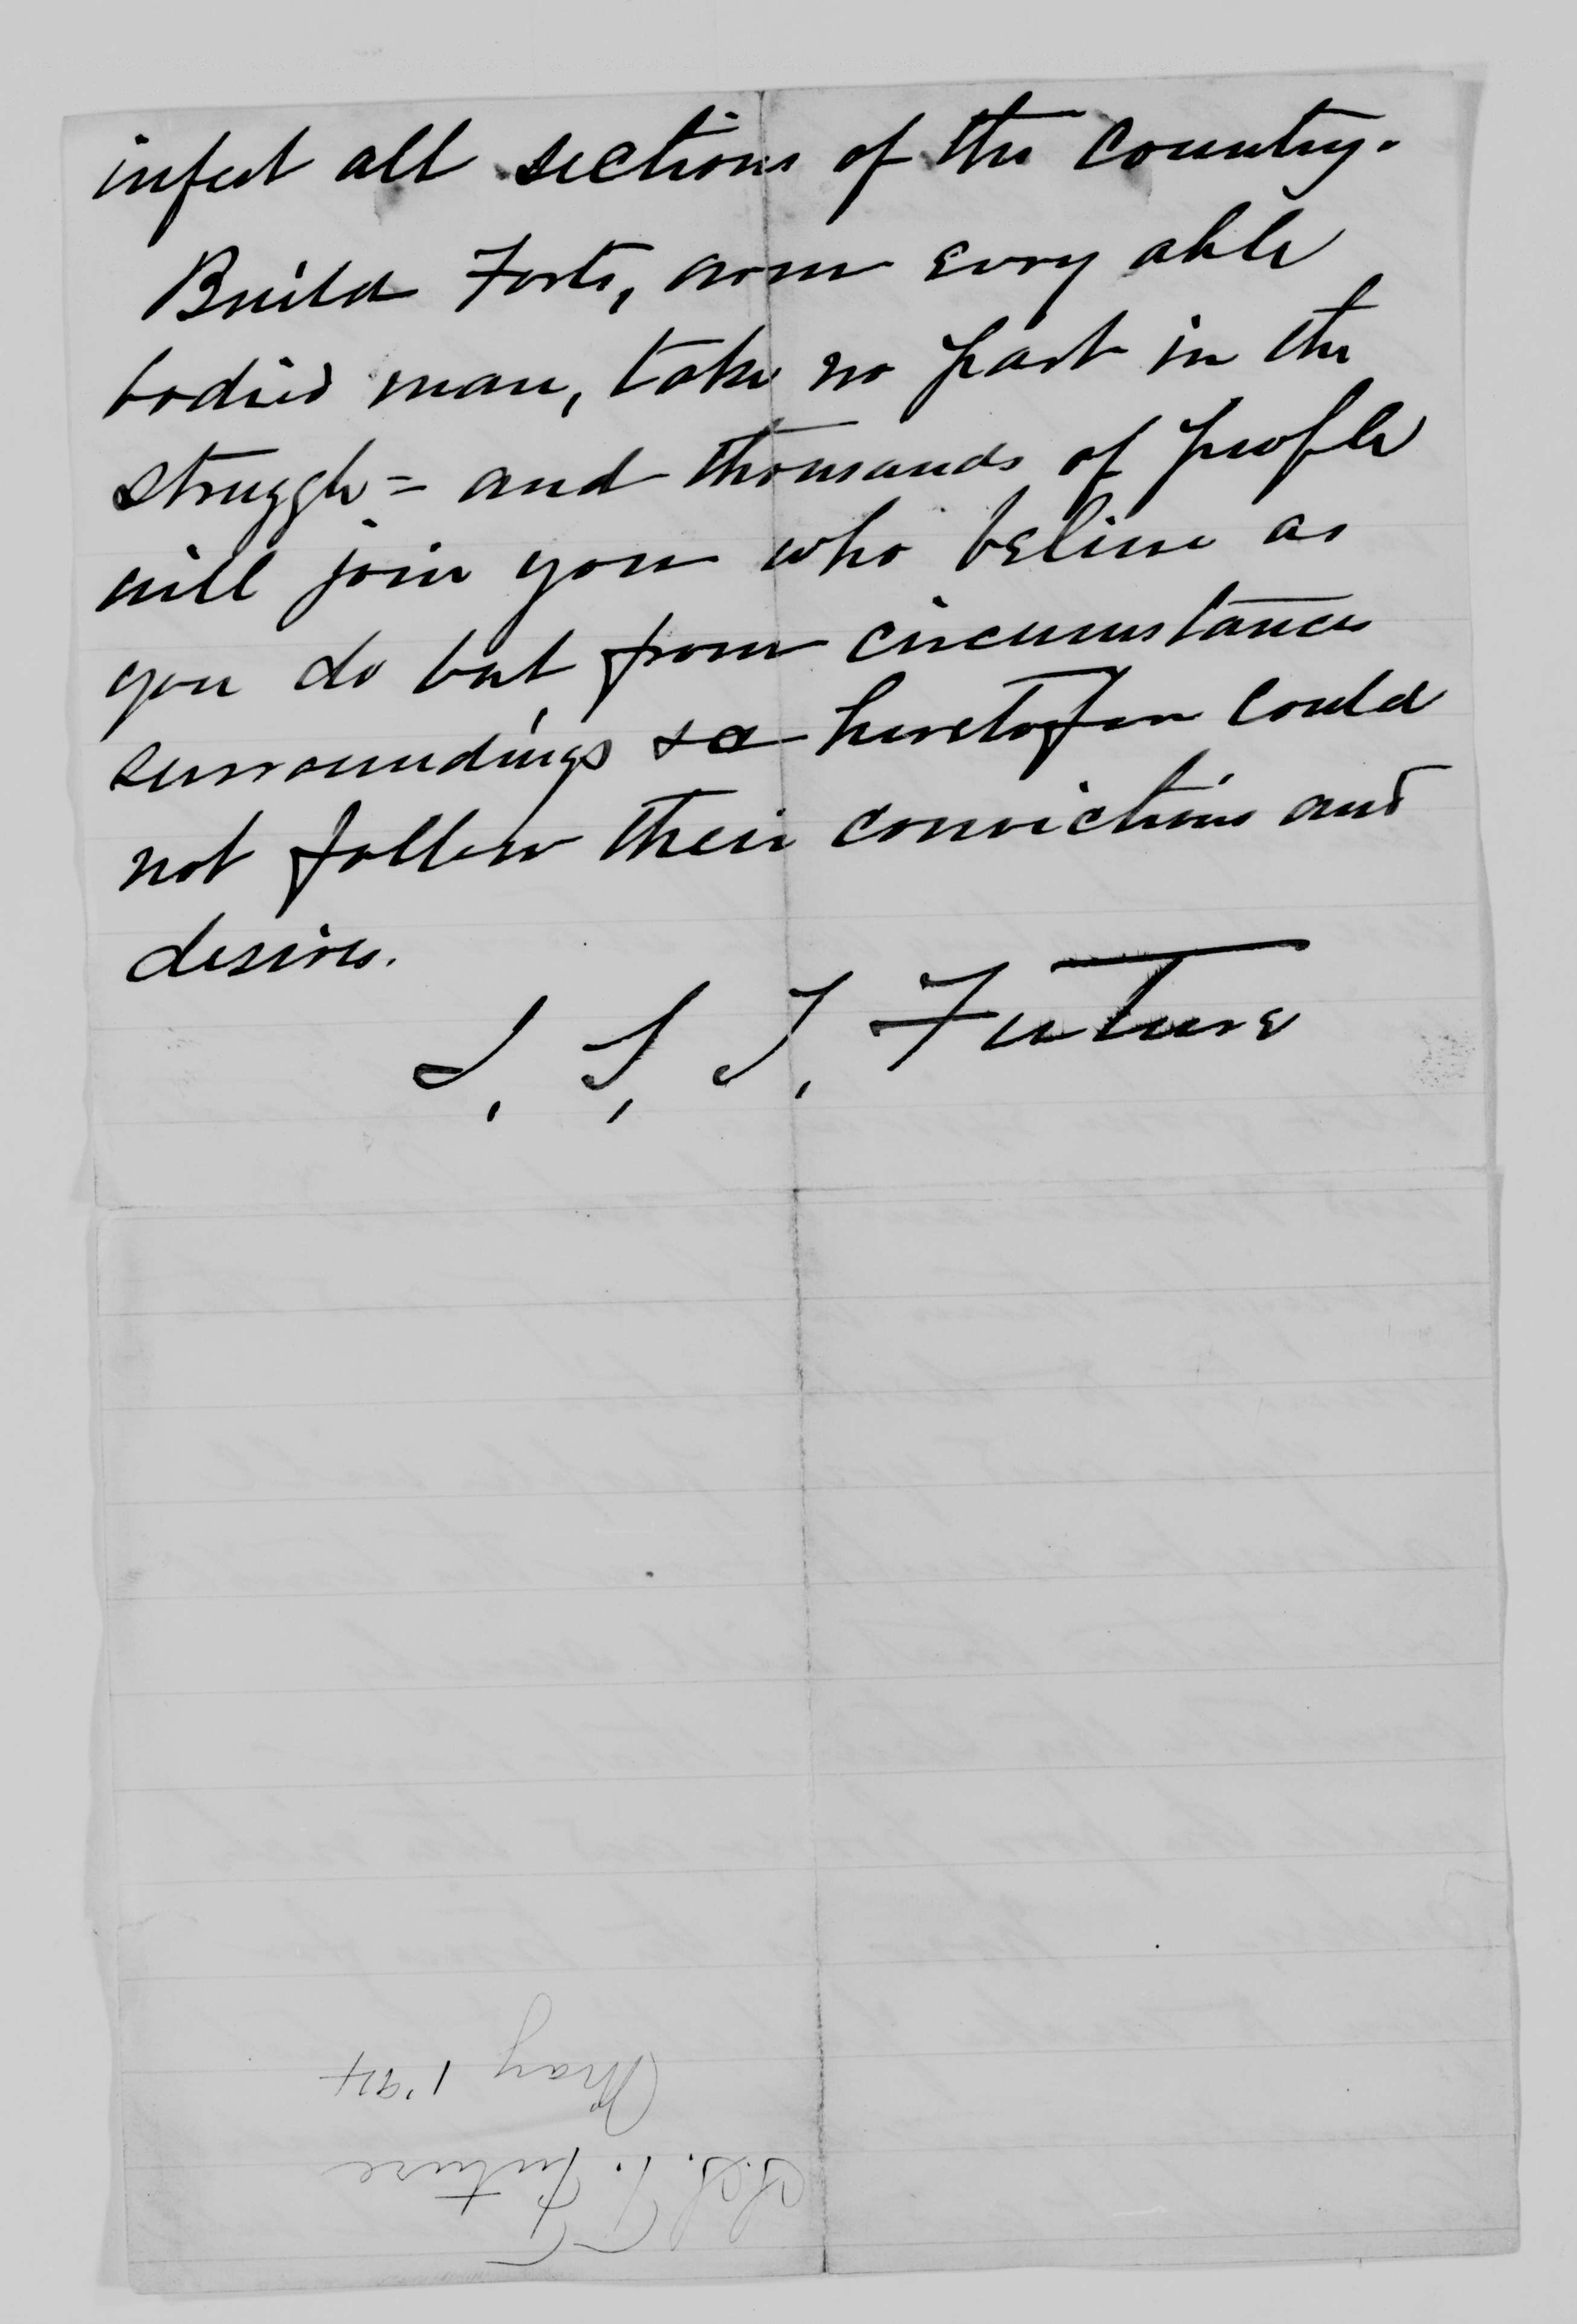 infest all sections of the country.
Build Forts, arm every able
bodied man, take no part in the
struggle = and thousands of people
will join you who believe as
you do but from circumstances
surroundings so heretofore could
not follow their convictions and
desires.
I, S, T, Future
I. S. T. Future
May 1 '94